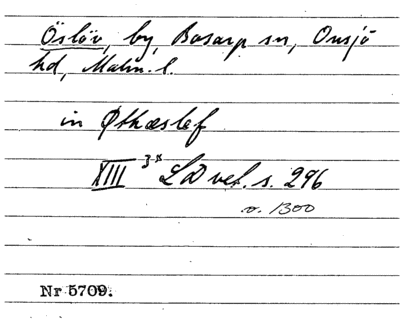 Öslöv, by, Bosarp sn, Onsjö
hd, Malm. l.
in Øthæslef
XIII 3x LD vet. s. 296
o. 1300
Nr 5709.